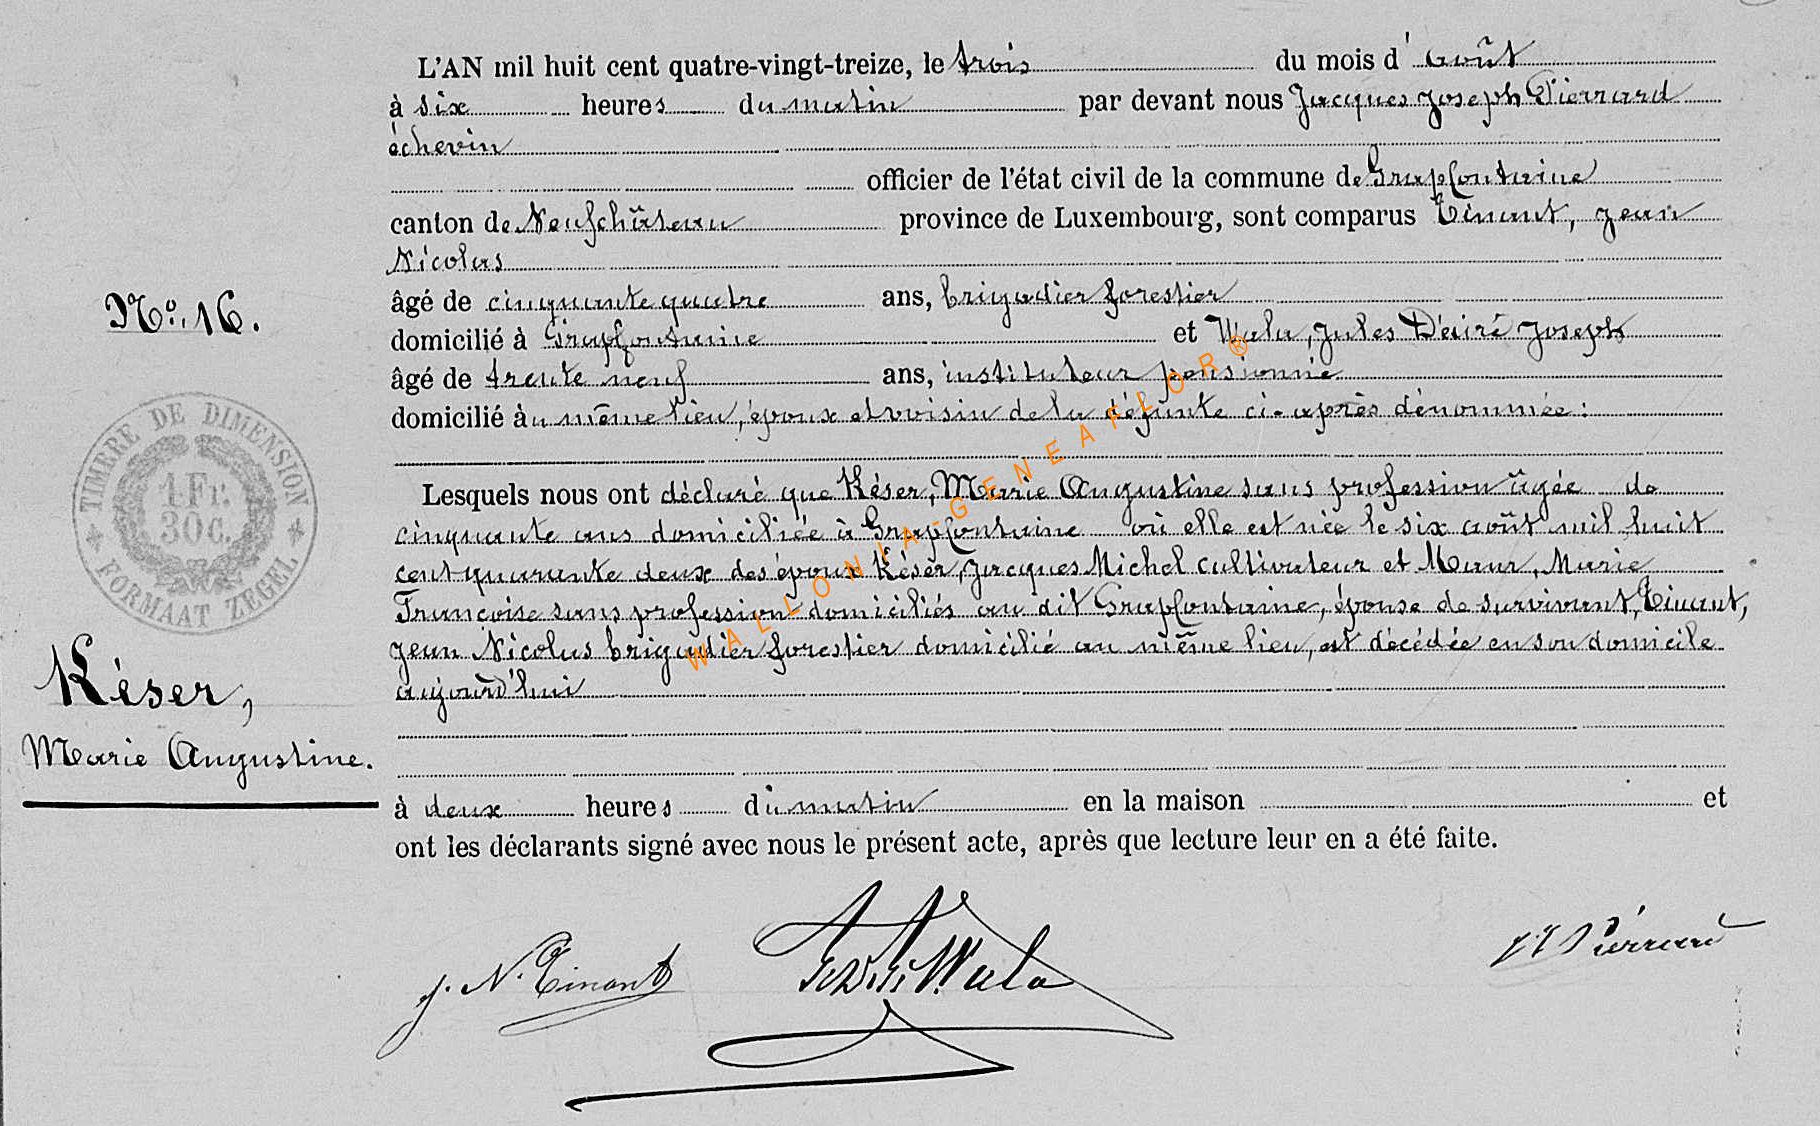 L'AN mil huit cent quatre-vingt-treize, le trois du mois d'août
à six heures du matin par devant nous Jacques Joseph Pierrard
échevin
officier de l'état civil de la commune de Grapfontaine
canton de Neufchâteau province de Luxembourg, sont comparus Tinant, Jean
Nicolas
âgé de cinquante quatre ans, brigadier forestier
domicilié à Grapfontaine et Wala, Jules Désiré Joseph
âgé de trente neuf ans, instituteur pensionné
domicilié au même lieu, époux et voisin de la défunte ci-après dénommée :
Lesquels nous ont déclaré que Késer, Marie Augustine sans profession âgée de
cinquante ans domiciliée à Grapfontaine où elle est née le six août mil huit
cent quarante deux des époux Késer, Jacques Michel cultivateur et Maur, Marie
Françoise sans profession domiciliés au dit Grapfontaine, épouse de survivant, Tinant,
Jean Nicolas brigadier forestier domicilié au même lieu, est décédée en son domicile
aujourd'hui
à deux heures du matin en la maison et
ont les déclarants signé avec nous le présent acte, après que lecture leur en a été faite.
J. N. Tinant
Wala
JJ Pierrard
No. 16.
TIMBRE DE DIMENSION
1 Fr.
30 c.
FORMAAT ZEGEL
Késer,
Marie Augustine.
WALLONIA-GENEAFLOR®